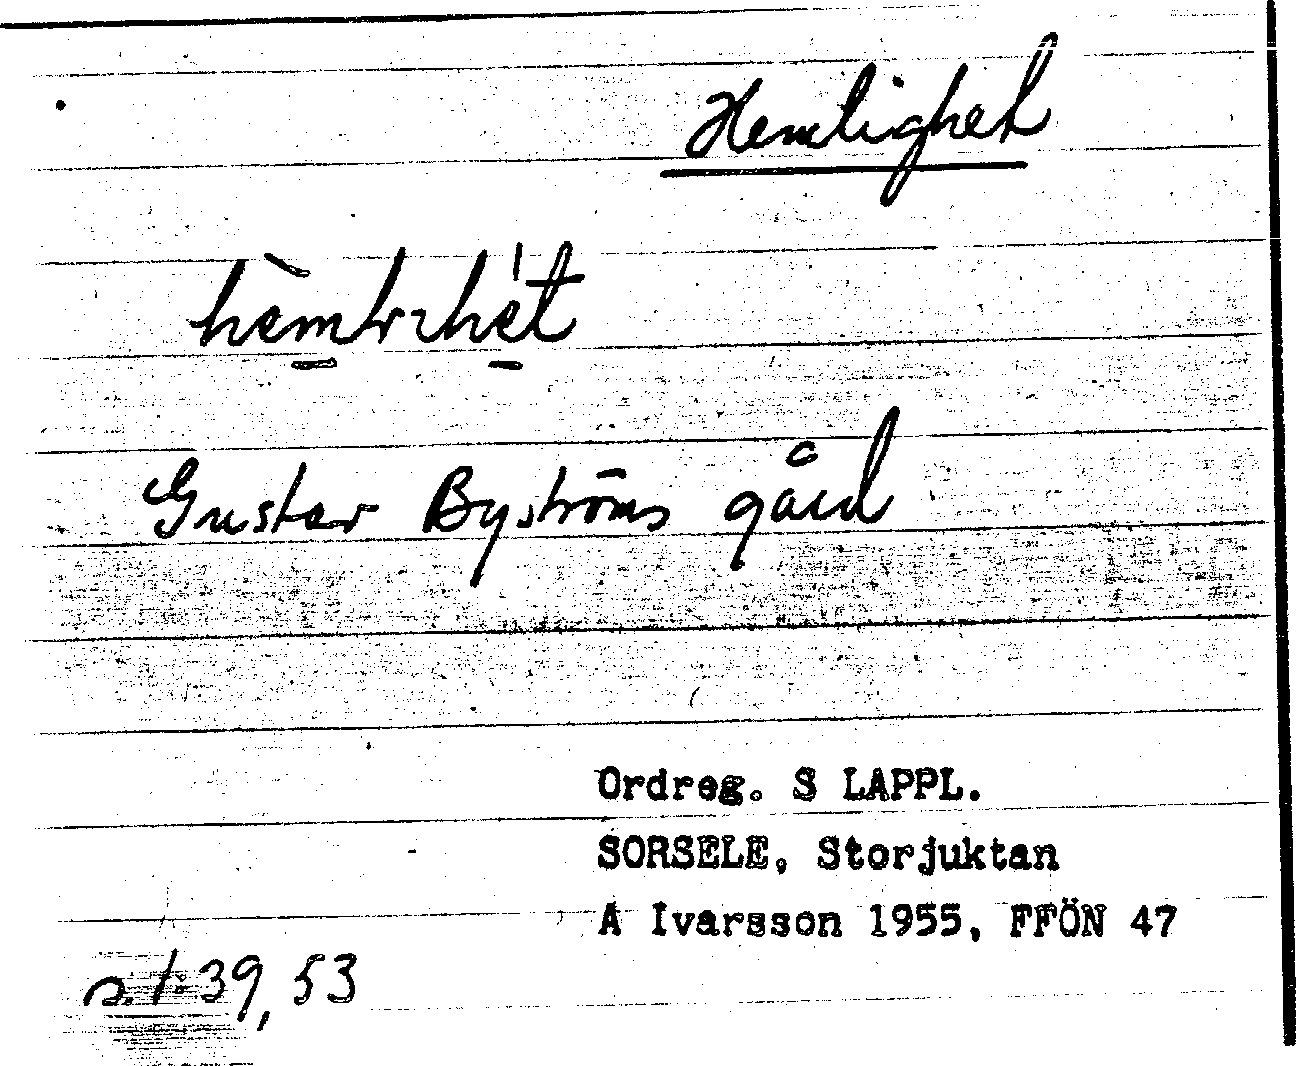 Hemlighet
Gustav Byströms gård
Ordreg. S LAPPL.
SORSELE, Storjuktan
A Ivarsson 1955, FFÖN 47
s. 1:39, 53